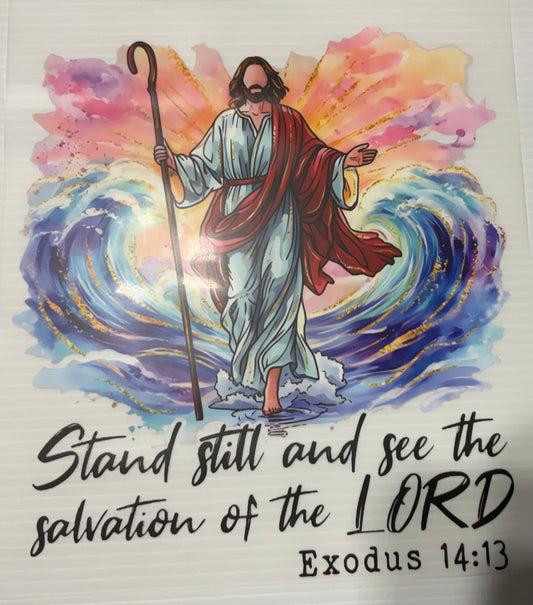 Stand still and see the
salvation of the LORD
Exodus 14:13